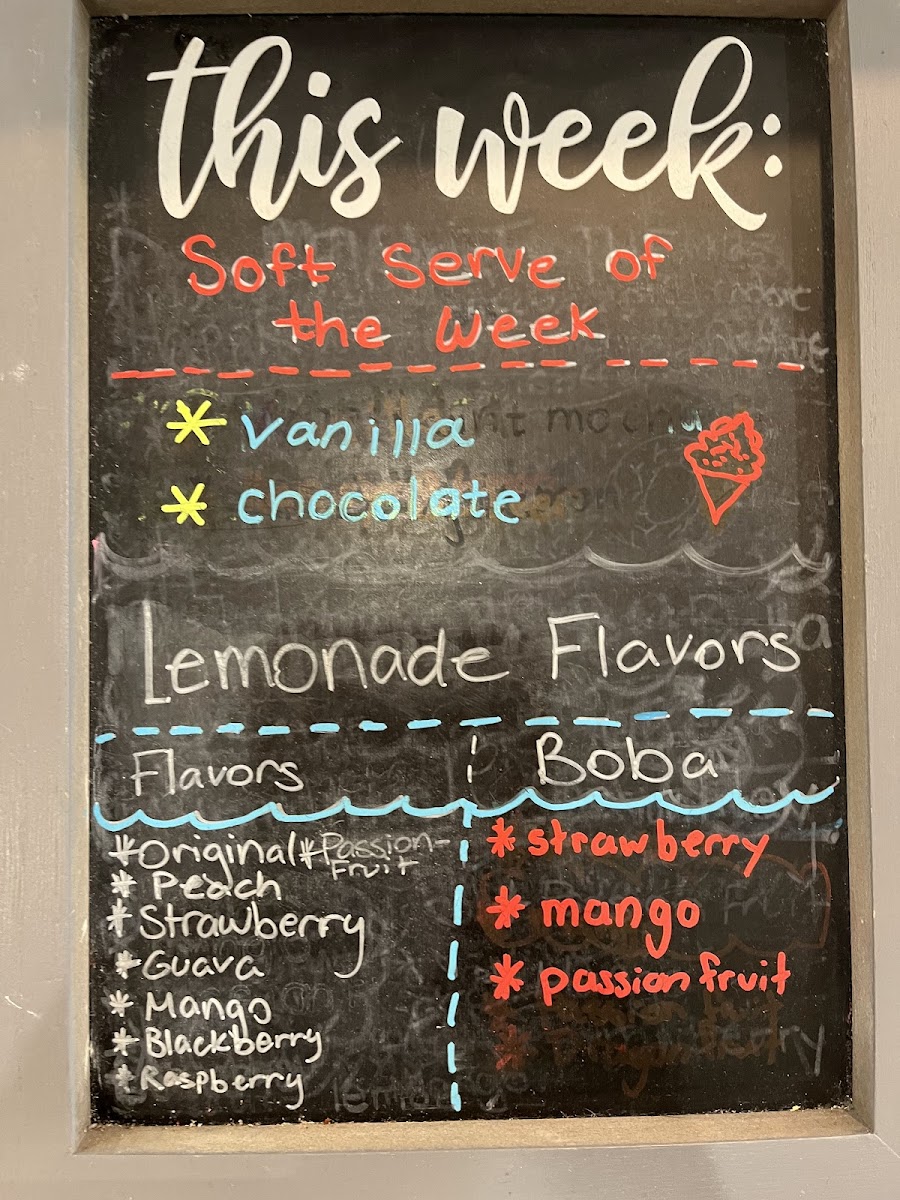 this week:
Soft Serve of
the week
* vanilla
* chocolate
Lemonade Flavors
Flavors
* Original * Passion-
Fruit
* Peach
* Strawberry
* Guava
* Mango
* Blackberry
* Raspberry
Boba
* strawberry
* mango
* passion fruit